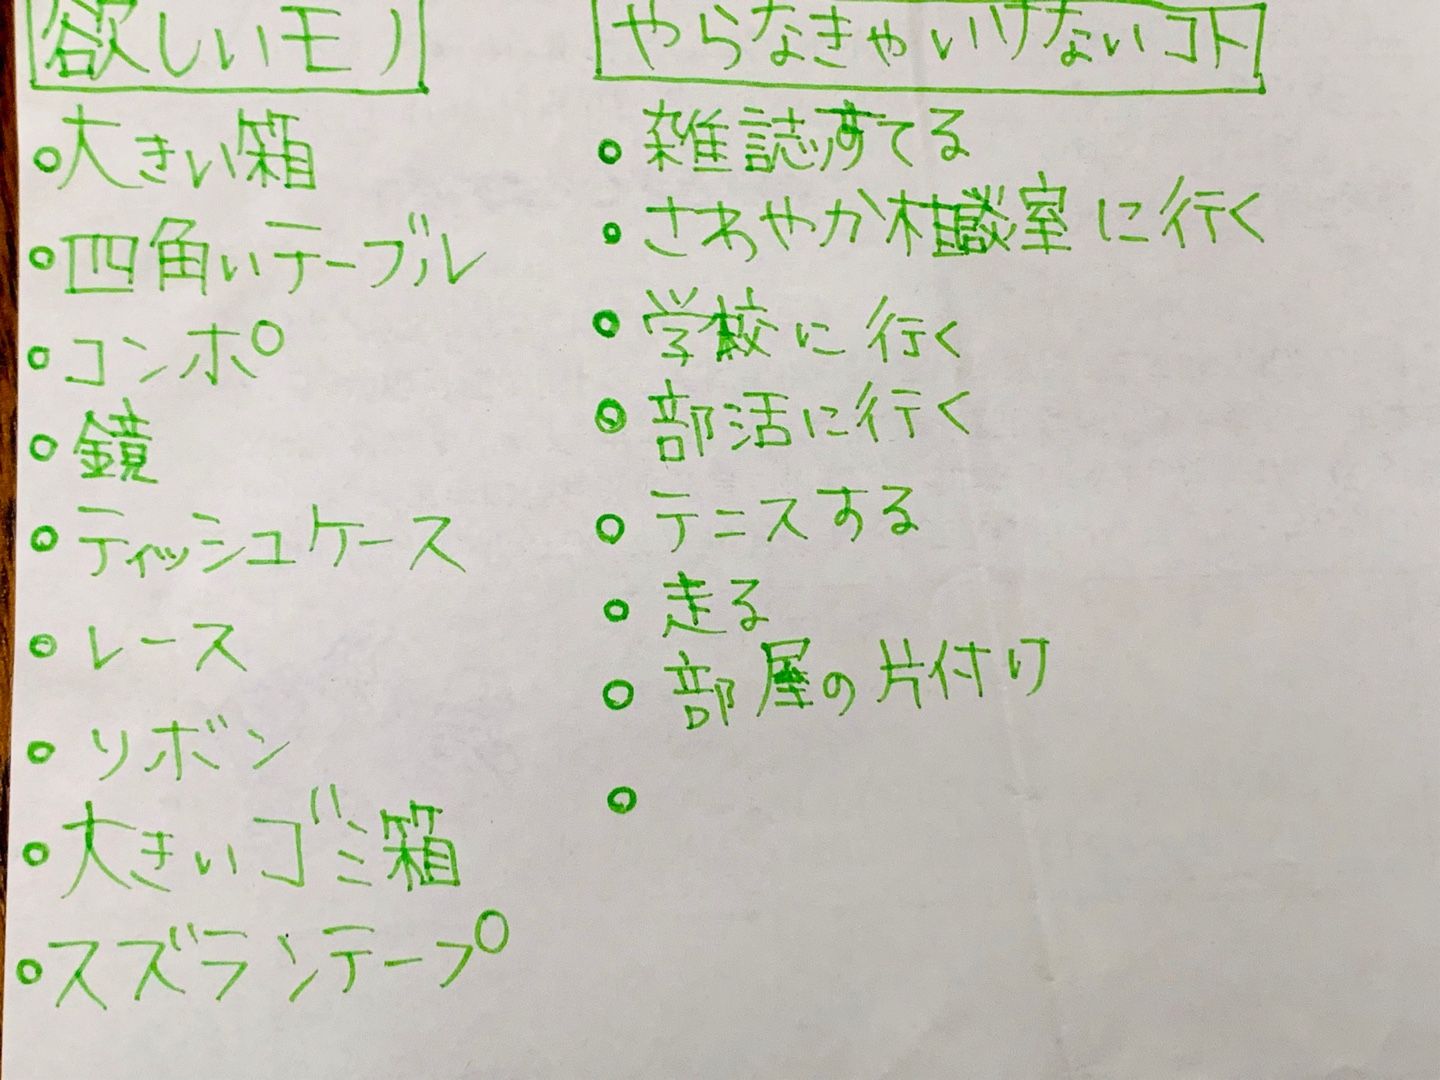 欲しいモノ
○大きい箱
○四角いテーブル
○コンポ
○鏡
○ティッシュケース
○レース
○リボン
○大きいゴミ箱
○スズランテープ
やらなきゃいけないコト
○雑誌すてる
○さわやか相談室に行く
○学校に行く
○部活に行く
○テニスする
○走る
○部屋の片付け
○